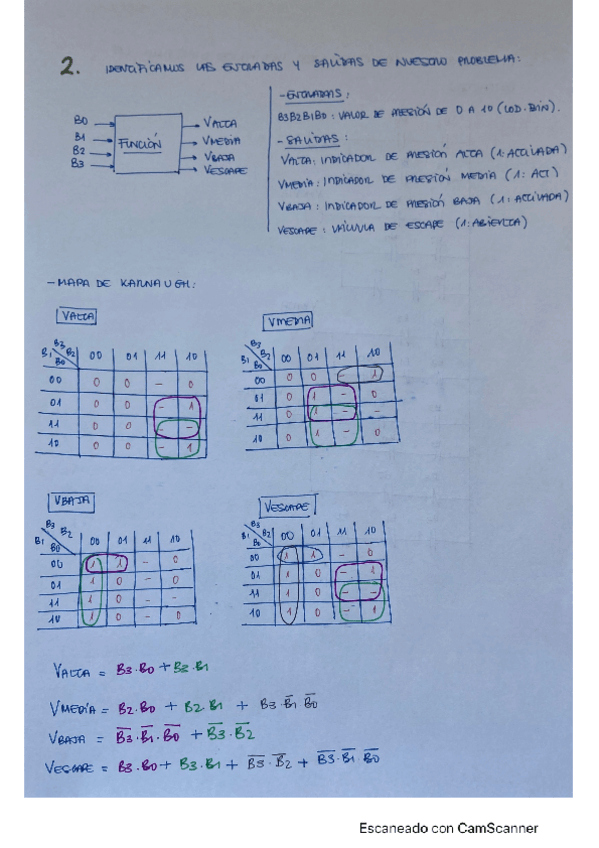 2. IDENTIFICAMOS LAS ENTRADAS Y SALIDAS DE NUESTRO PROBLEMA:
B0
B1
B2
B3
FUNCIÓN
VALTA
VMEDIA
VBAJA
VESCAPE
- ENTRADAS:
B3B2B1B0: VALOR DE PRESIÓN DE 0 A 10 (COD. BIN).
- SALIDAS:
VALTA: INDICADOR DE PRESIÓN ALTA (1: ACTIVADA)
VMEDIA: INDICADOR DE PRESIÓN MEDIA (1: ACT)
VBAJA: INDICADOR DE PRESIÓN BAJA (1: ACTIVADA)
VESCAPE: VÁLVULA DE ESCAPE (1: ABIERTA)
- MAPA DE KARNAUGH:
VALTA
B3 B2
B1 B0 00 01 11 10
00 0 0 - 0
01 0 0 - 1
11 0 0 - -
10 0 0 - 1
VMEDIA
B3 B2
B1 B0 00 01 11 10
00 0 0 - 1
01 0 1 - 0
11 0 1 - -
10 0 1 - 0
VBAJA
B3 B2
B1 B0 00 01 11 10
00 1 1 - 0
01 1 0 - 0
11 1 0 - -
10 1 0 - 0
VESCAPE
B3 B2
B1 B0 00 01 11 10
00 1 1 - 0
01 1 0 - 1
11 1 0 - -
10 1 0 - 1
VALTA = B3·B0 + B3·B1
VMEDIA = B2·B0 + B2·B1 + B3·B̅1̅ B̅0̅
VBAJA = B̅3̅·B̅1̅·B̅0̅ + B̅3̅·B̅2̅
VESCAPE = B3·B0 + B3·B1 + B̅3̅·B̅2̅ + B̅3̅·B̅1̅·B̅0̅
Escaneado con CamScanner